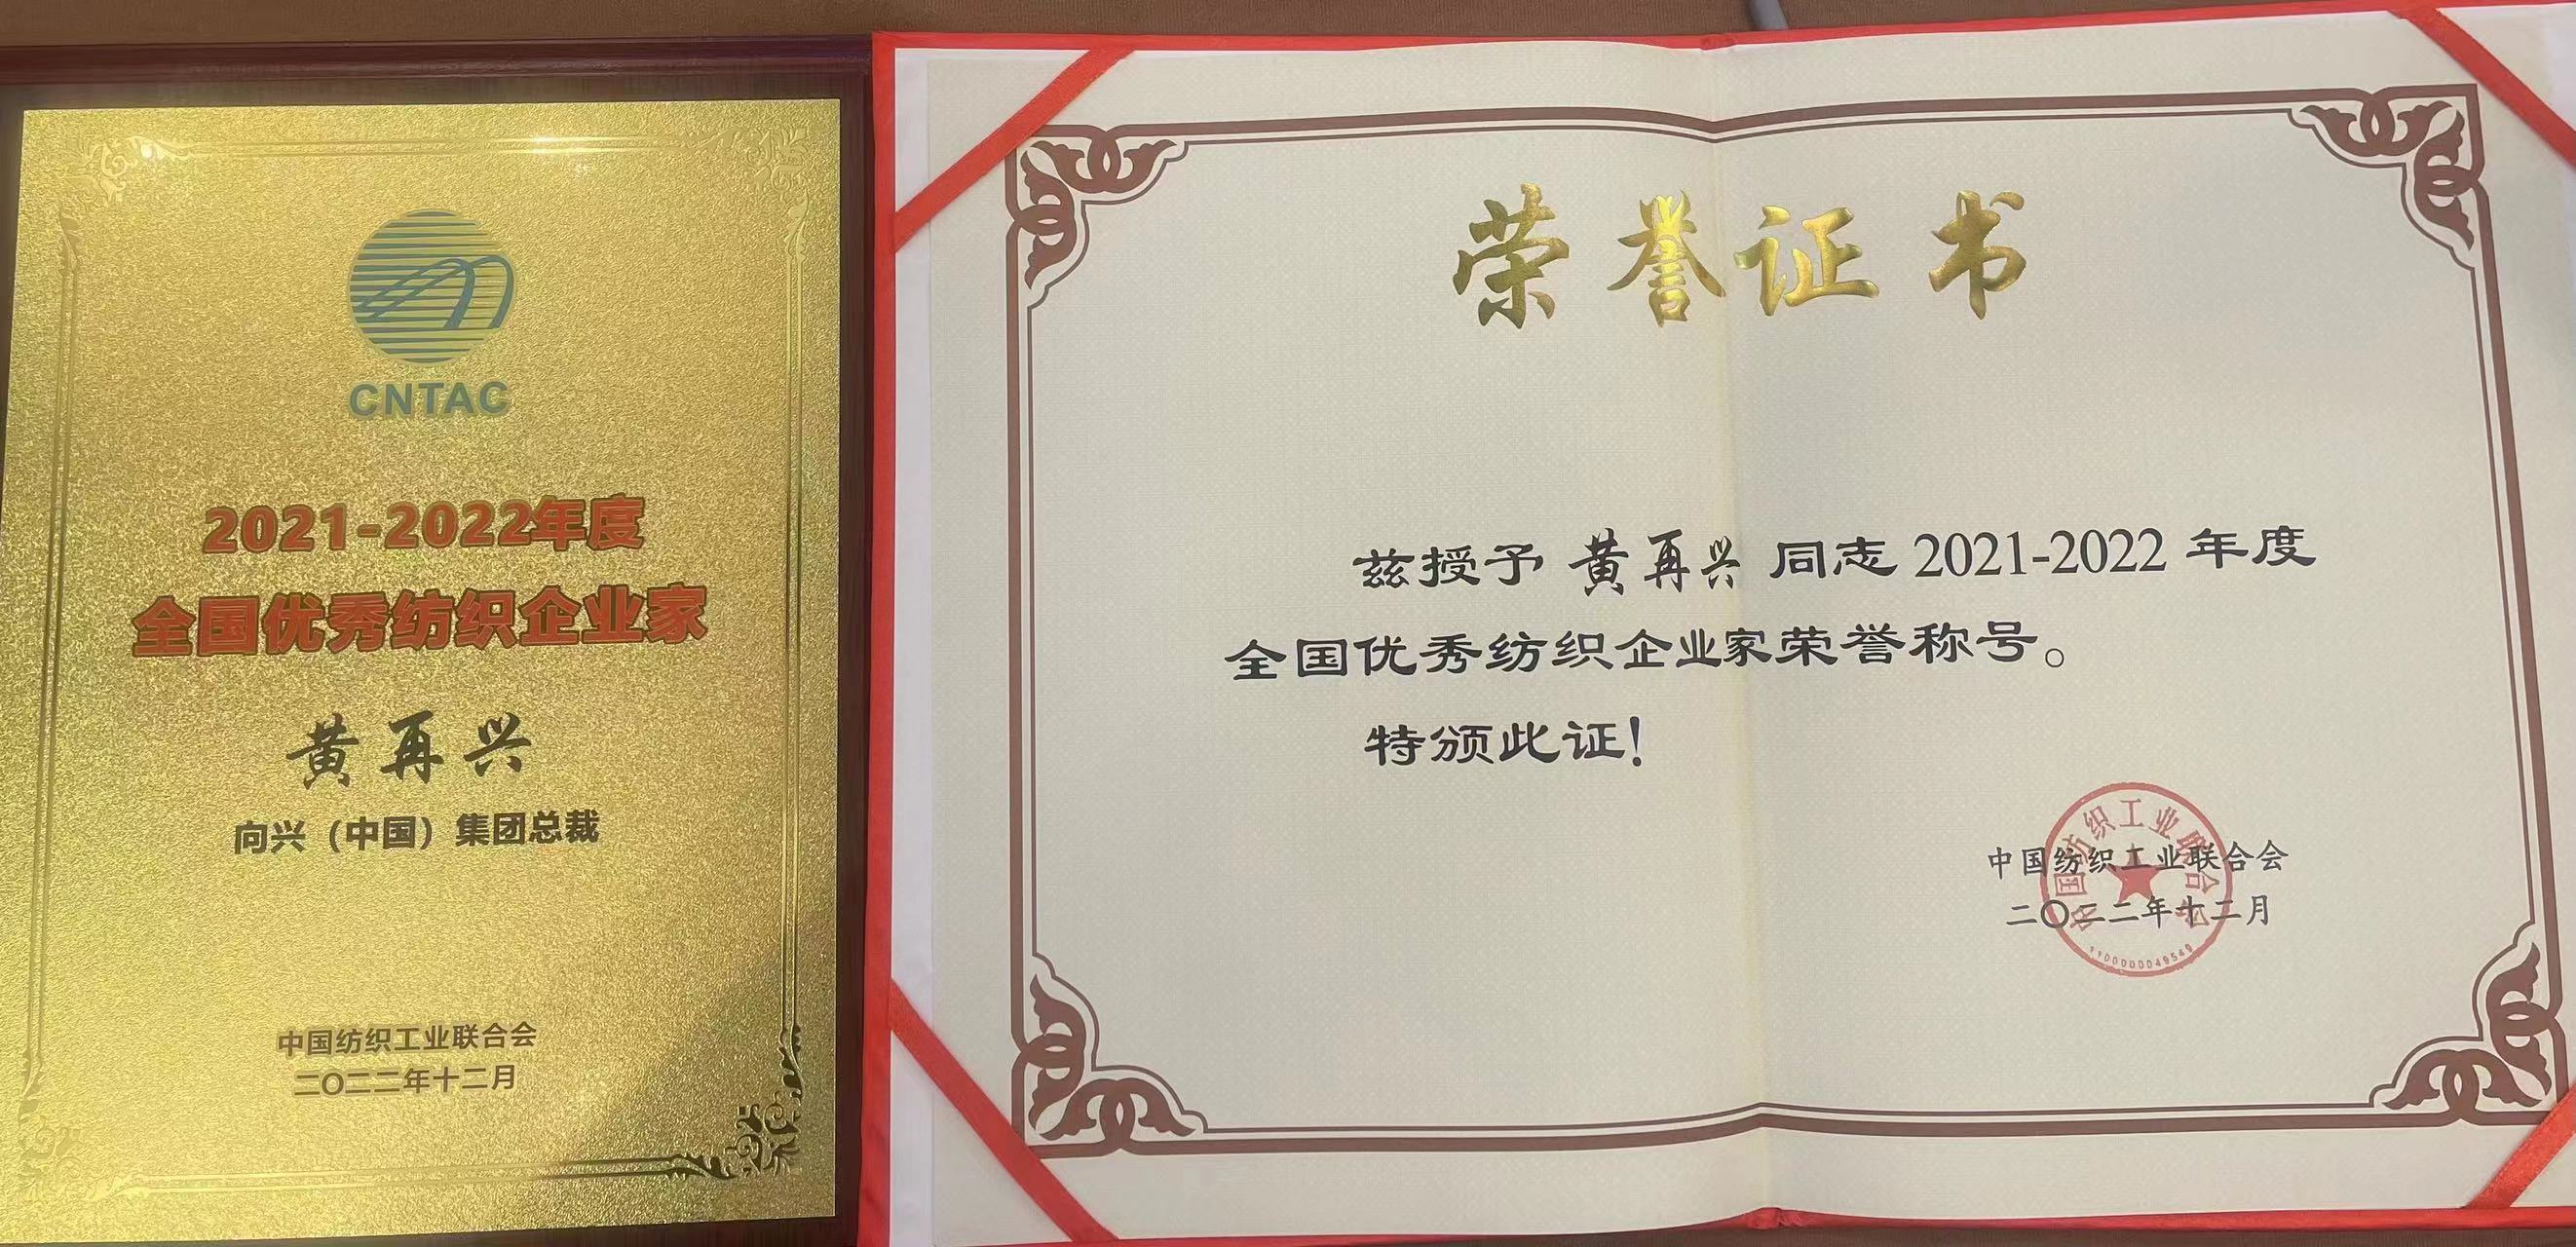 CNTAC
2021-2022年度
全国优秀纺织企业家
黄再兴
向兴（中国）集团总裁
中国纺织工业联合会
二〇二二年十二月
荣誉证书
兹授予 黄再兴 同志 2021-2022 年度
全国优秀纺织企业家荣誉称号。
特颁此证！
中国纺织工业联合会
二〇二二年十二月
中国纺织工业联合会